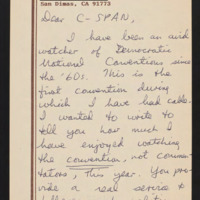 San Dimas, CA 91773
Dear C-SPAN,
I have been an avid
watcher of Democratic
National Conventions since
the '60s. This is the
first convention during
which I have had cable.
I wanted to write to
tell you how much I
have enjoyed watching
the convention, not commen-
tators, this year. You pro-
vide a real service &